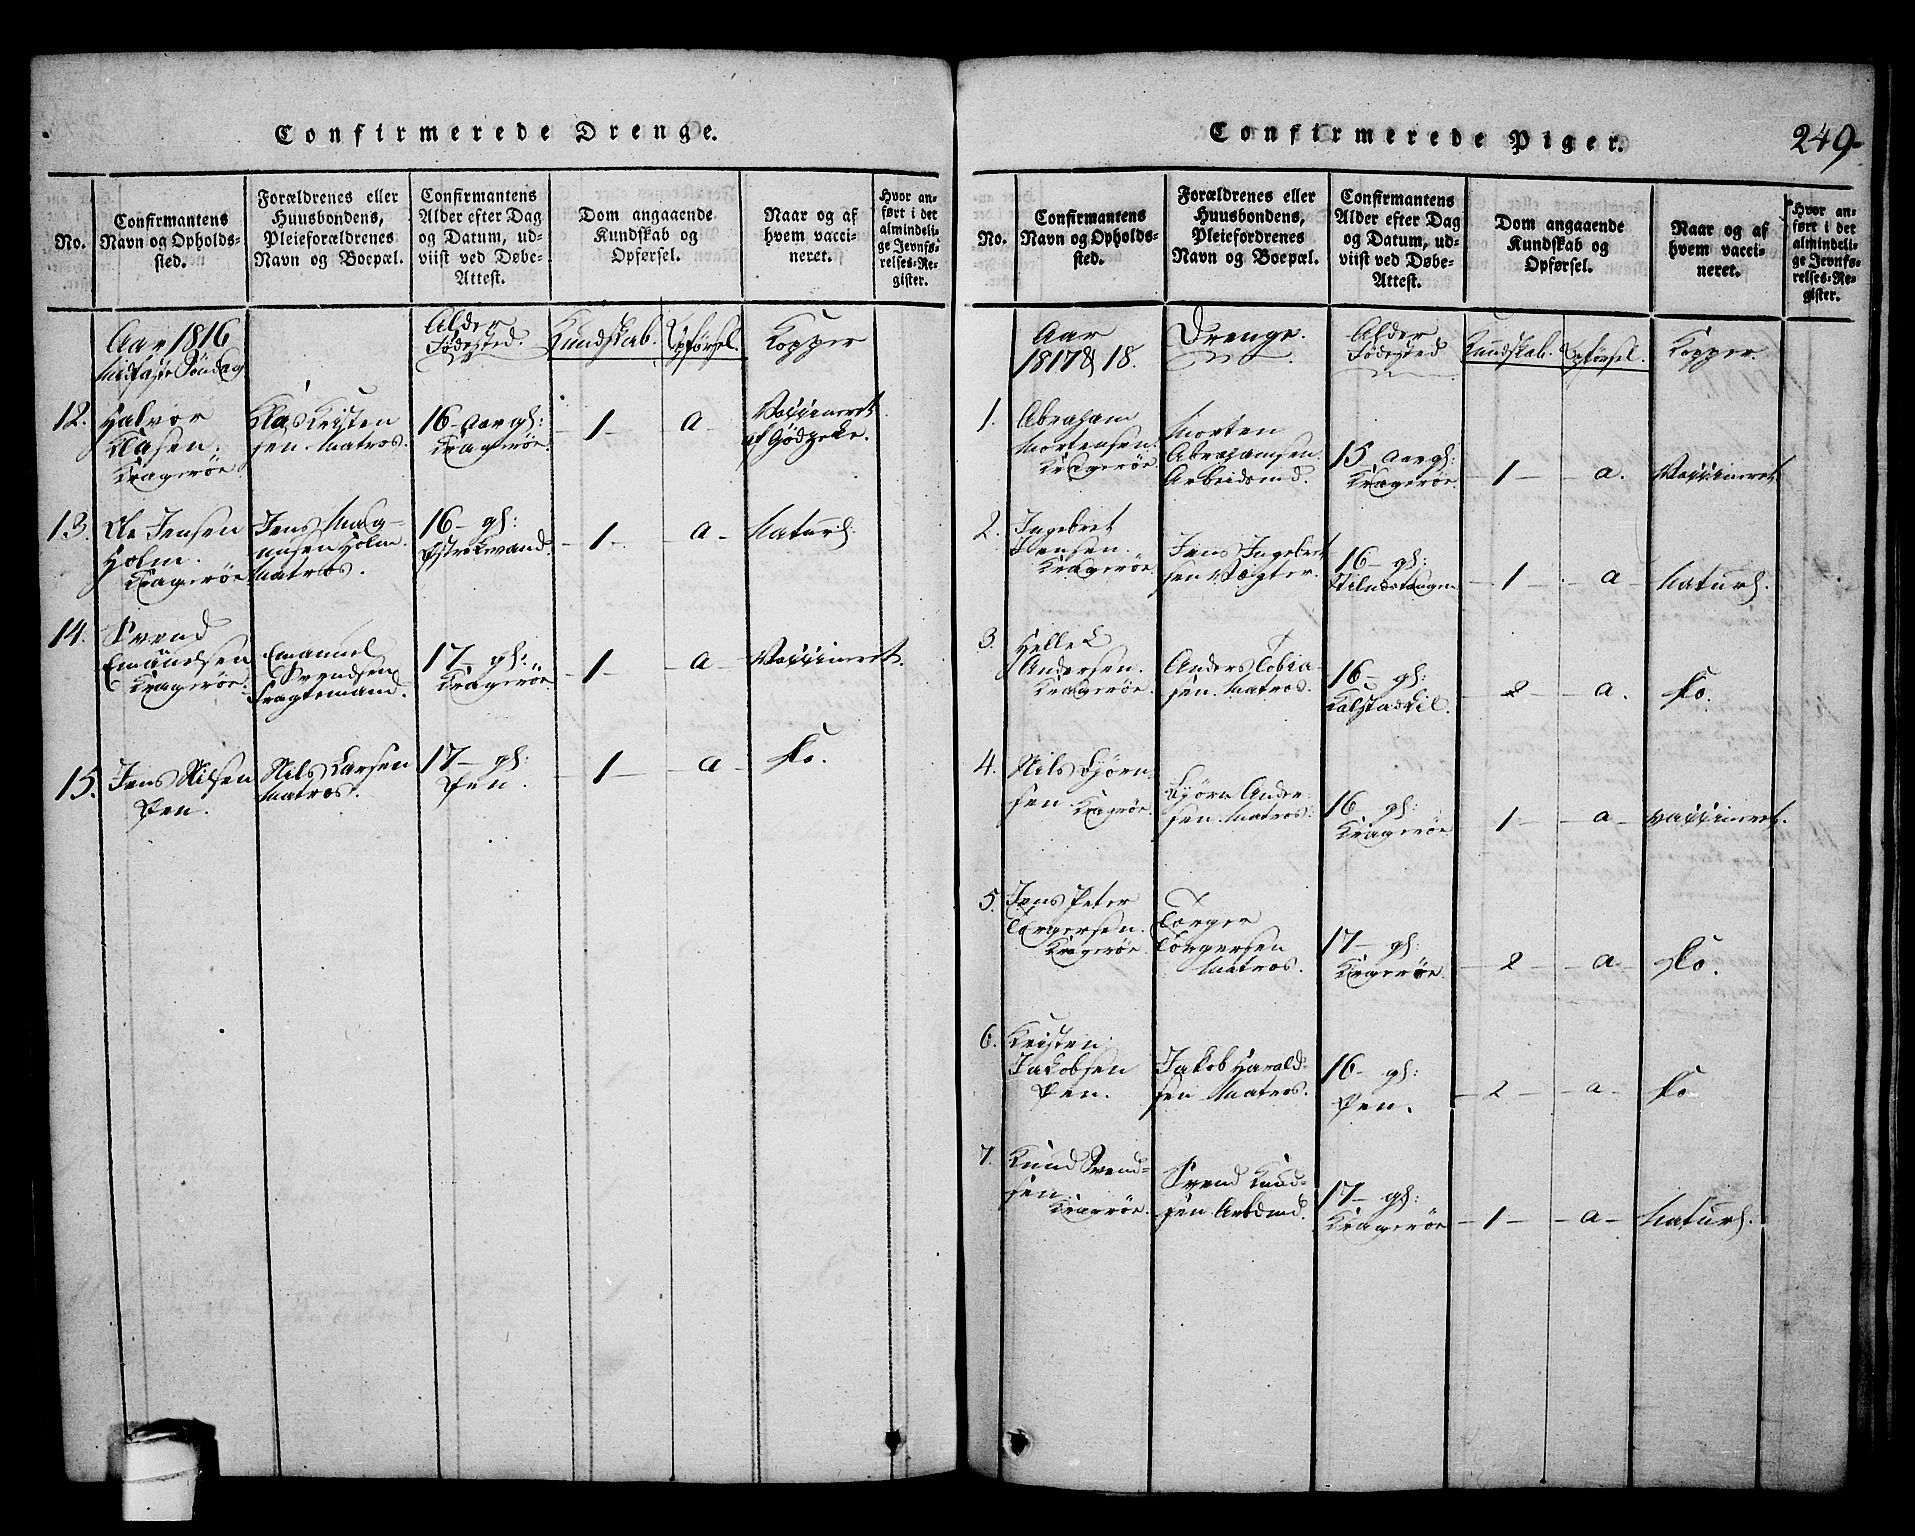 Confirmerede Drenge.
No.
Confirmantens
Navn og Opholds-
sted.
Forældrenes eller
Huusbondens,
Pleieforældrenes
Navn og Boepæl.
Confirmantens
Alder efter Dag
og Datum, ud-
viist ved Døbe-
Attest.
Dom angaaende
Kundskab og
Opførsel.
Naar og af
hvem vacci-
neret.
Hvor an-
ført i det
almindeli-
ge Jevnfø-
relses-Re-
gister.
Aar 1816
Midfaste Søndag
Alder
Fødested.
Kundskab.
Opførsel.
Kopper
12.
Halvor
Klasen.
Kragerøe
Klas Kristen
sen. Matros.
16 - aar gl:
Kragerøe.
- 1 -
a -
Vaccineret
af Gödecke.
13.
Ole Jensen
Holm.
Kragerøe
Jens Mag-
nusen Holm.
Matros.
16 - gl:
- 1 -
a -
Naturl.
14.
Svend
Emanuelsen
Kragerøe.
Emanuel
Svendsen
Fragtemand.
17 - gl:
Kragerøe.
- 1 -
- a -
Vaccineret.
15.
Jens Nilsen
Øen.
Nils Larsen
Matros.
17 - gl:
Øen.
- 1 -
- a -
Ko.
Confirmerede Piger.
249.
No.
Confirmantens
Navn og Opholds-
sted.
Forældrenes eller
Huusbondens,
Pleiefordrenes
Navn og Boepæl.
Confirmantens
Alder efter Dag
og Datum, ud-
viist ved Døbe-
Attest.
Dom angaaende
Kundskab og
Opførsel.
Naar og af
hvem vacci-
neret.
Hvor an-
ført i det
almindeli-
ge Jevnfø-
relses-Re-
gister.
Aar
1817 & 18.
Drenge.
Alder
Fødested
Kundskab.
Opførsel.
Kopper.
1.
Abraham
Mortensen.
Kragerøe.
Morten
Abrahamsen.
Arbeidsmd.
15 aar gl:
Kragerøe.
- 1 -
- a.
Vaccineret.
2.
Ingebret
Jensen.
Kragerøe.
Jens Ingebret
sen Vægter.
16 - gl:
- 1 -
- a -
Naturl.
3.
Andersen.
Kragerøe.
Anders Tobia-
sen. Matros.
16 - gl:
Kalstadkil.
- 2 -
- a.
Ko.
4.
Nils Bjørn-
sen.
Kragerøe.
Bjørn Ander-
sen. Matros.
16 - gl:
Kragerøe
1 -
- a -
vaccineret.
5.
Jens Peter
Torgersen.
Kragerøe.
Torger
Torgersen
Matros.
17 - gl:
Kragerøe.
- 2 -
- a -
Ko.
6.
Kristen
Jakobsen
Øen.
Jakob Harald-
sen Matros.
16 - gl:
Øen.
- 2 -
- a -
Ko
7.
Knud Svend-
sen.
Kragerøe.
Svend Knud-
sen Arbdmd.
17 - gl:
Kragerøe
- 1 -
- a -
Naturl.